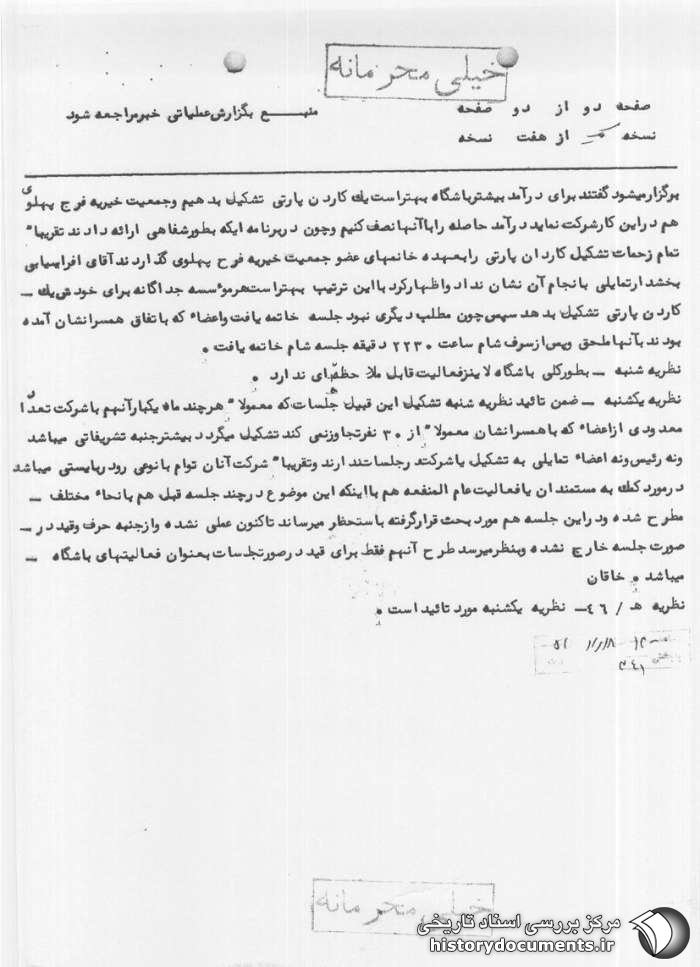 خیلی محرمانه
صفحه دو از دو صفحه
منبع بگزارش عملیاتی خبر مراجعه شود
نسخه از هفت نسخه
برگزار میشود گفتند برای درآمد بیشتر باشگاه بهتر است یك کاردن پارتی تشکیل بدهیم وجمعیت خیریه فرح پهلوی
هم در این کار شرکت نماید درآمد حاصله را باآنها نصف کنیم وچون در برنامه ایکه بطور شفاهی ارائه دادند تقریبا"
تمام زحمات تشکیل کاردان پارتی را بعهده خانمهای عضو جمعیت خیریه فرح پهلوی گذاردند آقای افراسیابی
بخشدار تمایلی با نجام آن نشان نداد واظهار کرد با این ترتیب بهتر است هر موٴسسه جداگانه برای خودش یك ـ
کاردن پارتی تشکیل بدهد سپس چون مطلب دیگری نبود جلسه خاتمه یافت واعضاء که باتفاق همسرانشان آمده
بودند بآنها ملحق وپس از سرف شام ساعت ۲۲۳۰ دقیقه جلسه شام خاتمه یافت .
نظریه شنبه ـ بطور کلی باشگاه لاینز فعالیت قابل ملاحظه‌ای ندارد .
نظریه یکشنبه ـ ضمن تائید نظریه شنبه تشکیل این قبیل جلسات که معمولا" هر چند ماه یکبار آنهم با شرکت تعداد
معدودی از اعضاء که با همسرانشان معمولا" از ۳۰ نفر تجاوز نمی کند تشکیل میگردد بیشتر جنبه تشریفاتی میباشد
ونه رئیس ونه اعضاء تمایلی به تشکیل یا شرکت در جلسات ندارند وتقریبا" شرکت آنان توام با نوعی رودربایستی میباشد
در مورد کمك به مستمندان یا فعالیت عام المنفعه هم با اینکه این موضوع در چند جلسه قبل هم بانحاء مختلف ـ
مطرح شده ودر این جلسه هم مورد بحث قرار گرفته با ستحظار میرساند تاکنون عملی نشده واز جنبه حرف وقید در ـ
صورت جلسه خارج نشده وبنظر میرسد طرح آنهم فقط برای قید در صورتجلسات بعنوان فعالیتهای باشگاه ـ
میباشد . خاقان
نظریه هـ / ٤٦ـ نظریه یکشنبه مورد تائید است .
خیلی محرمانه
مرکز بررسی اسناد تاریخی
historydocuments.ir